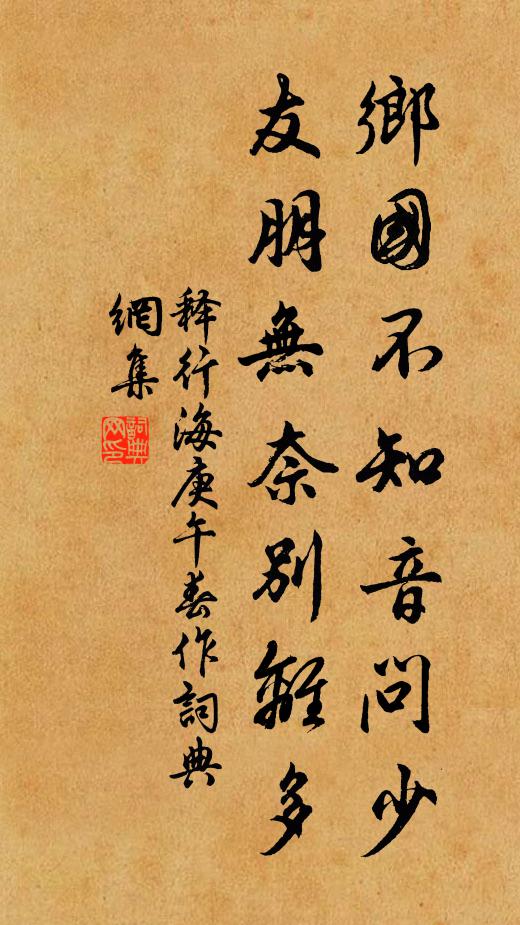 鄉國不知音問少
友朋無奈別離多
释行海庚午春作詞典
網集
詞典
网印